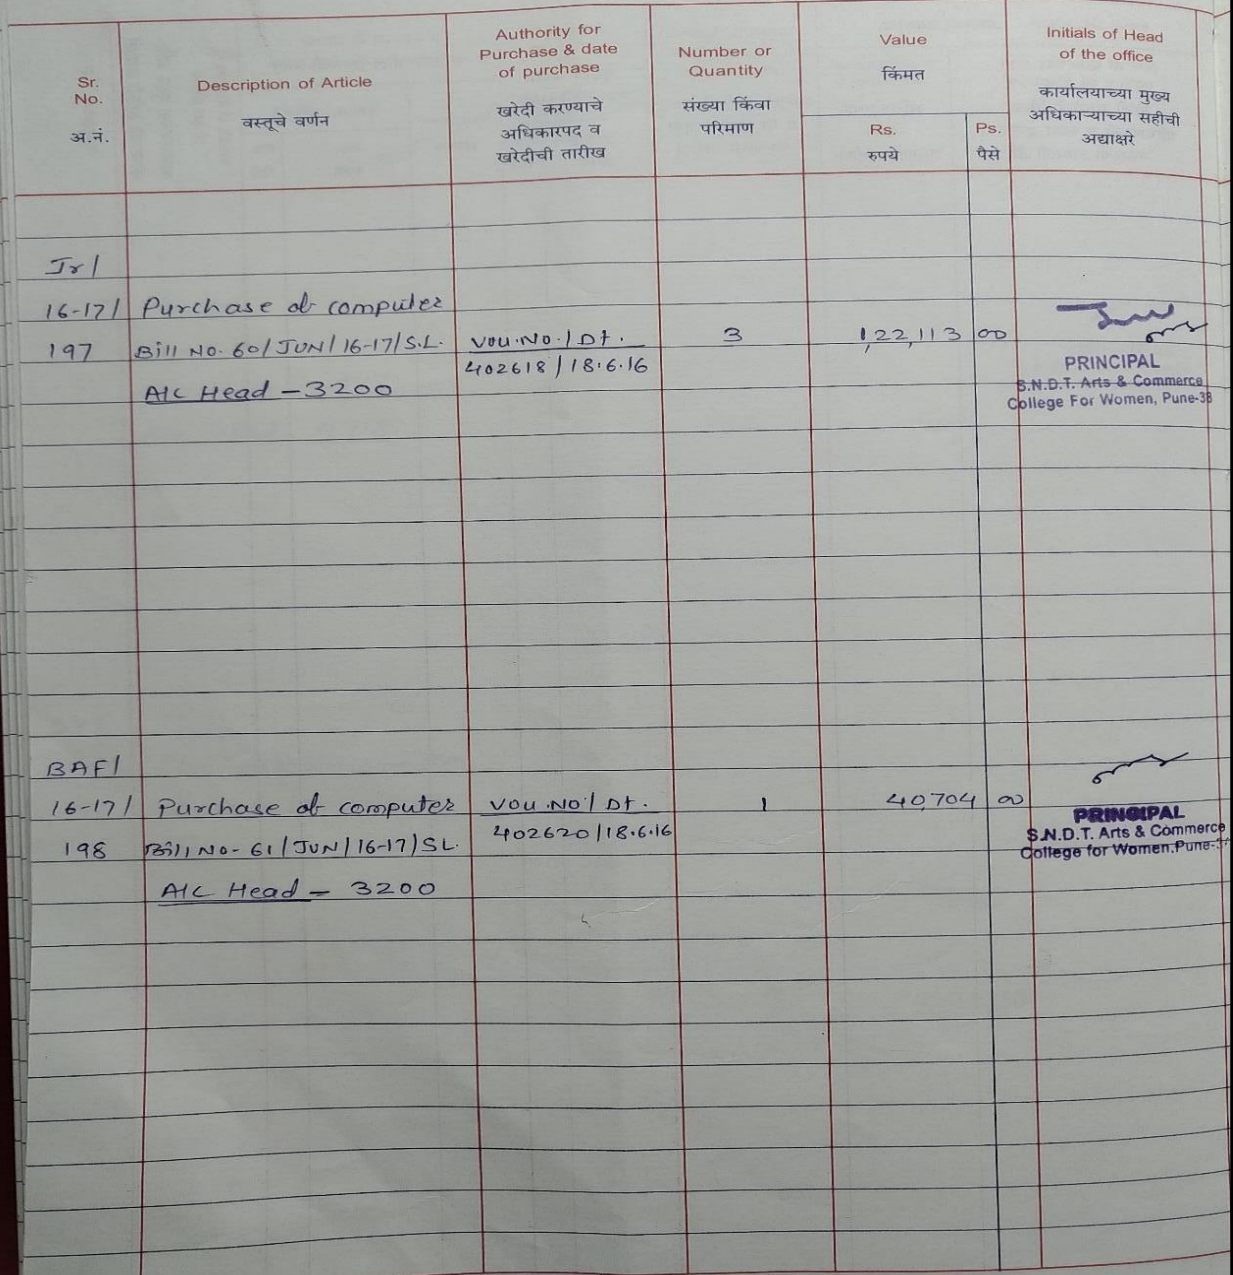 Sr.
No.
अ.नं.
Description of Article
वस्तूचे वर्णन
Authority for
Purchase & date
of purchase
खरेदी करण्याचे
अधिकारपद व
खरेदीची तारीख
Number or
Quantity
संख्या किंवा
परिमाण
Value
किंमत
Rs.
रुपये
Ps.
पैसे
Initials of Head
of the office
कार्यालयाच्या मुख्य
अधिकाऱ्याच्या सहीची
अद्याक्षरे
Jr/
16-17/ Purchase of computer
197 Bill No. 60/JUN/16-17/S.L. Vou.No./Dt. 3 1,22,113 00
402618/18.6.16
A/C Head - 3200
PRINCIPAL
S.N.D.T. Arts & Commerce
College For Women, Pune-38
BAF/
16-17/ Purchase of computer Vou.No/Dt. 1 40,704 00
402620/18.6.16
198 Bill No- 61/JUN/16-17/SL.
A/C Head - 3200
PRINCIPAL
S.N.D.T. Arts & Commerce
College for Women, Pune-